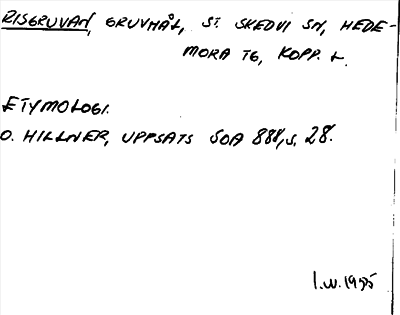 RISGRUVAN, GRUVHÅL, ST. SKEDVI SN, HEDE-
MORA TG, KOPP. L.
ETYMOLOGI.
O. HILLNER, UPPSATS SOA 888, S. 28.
I.W. 1955